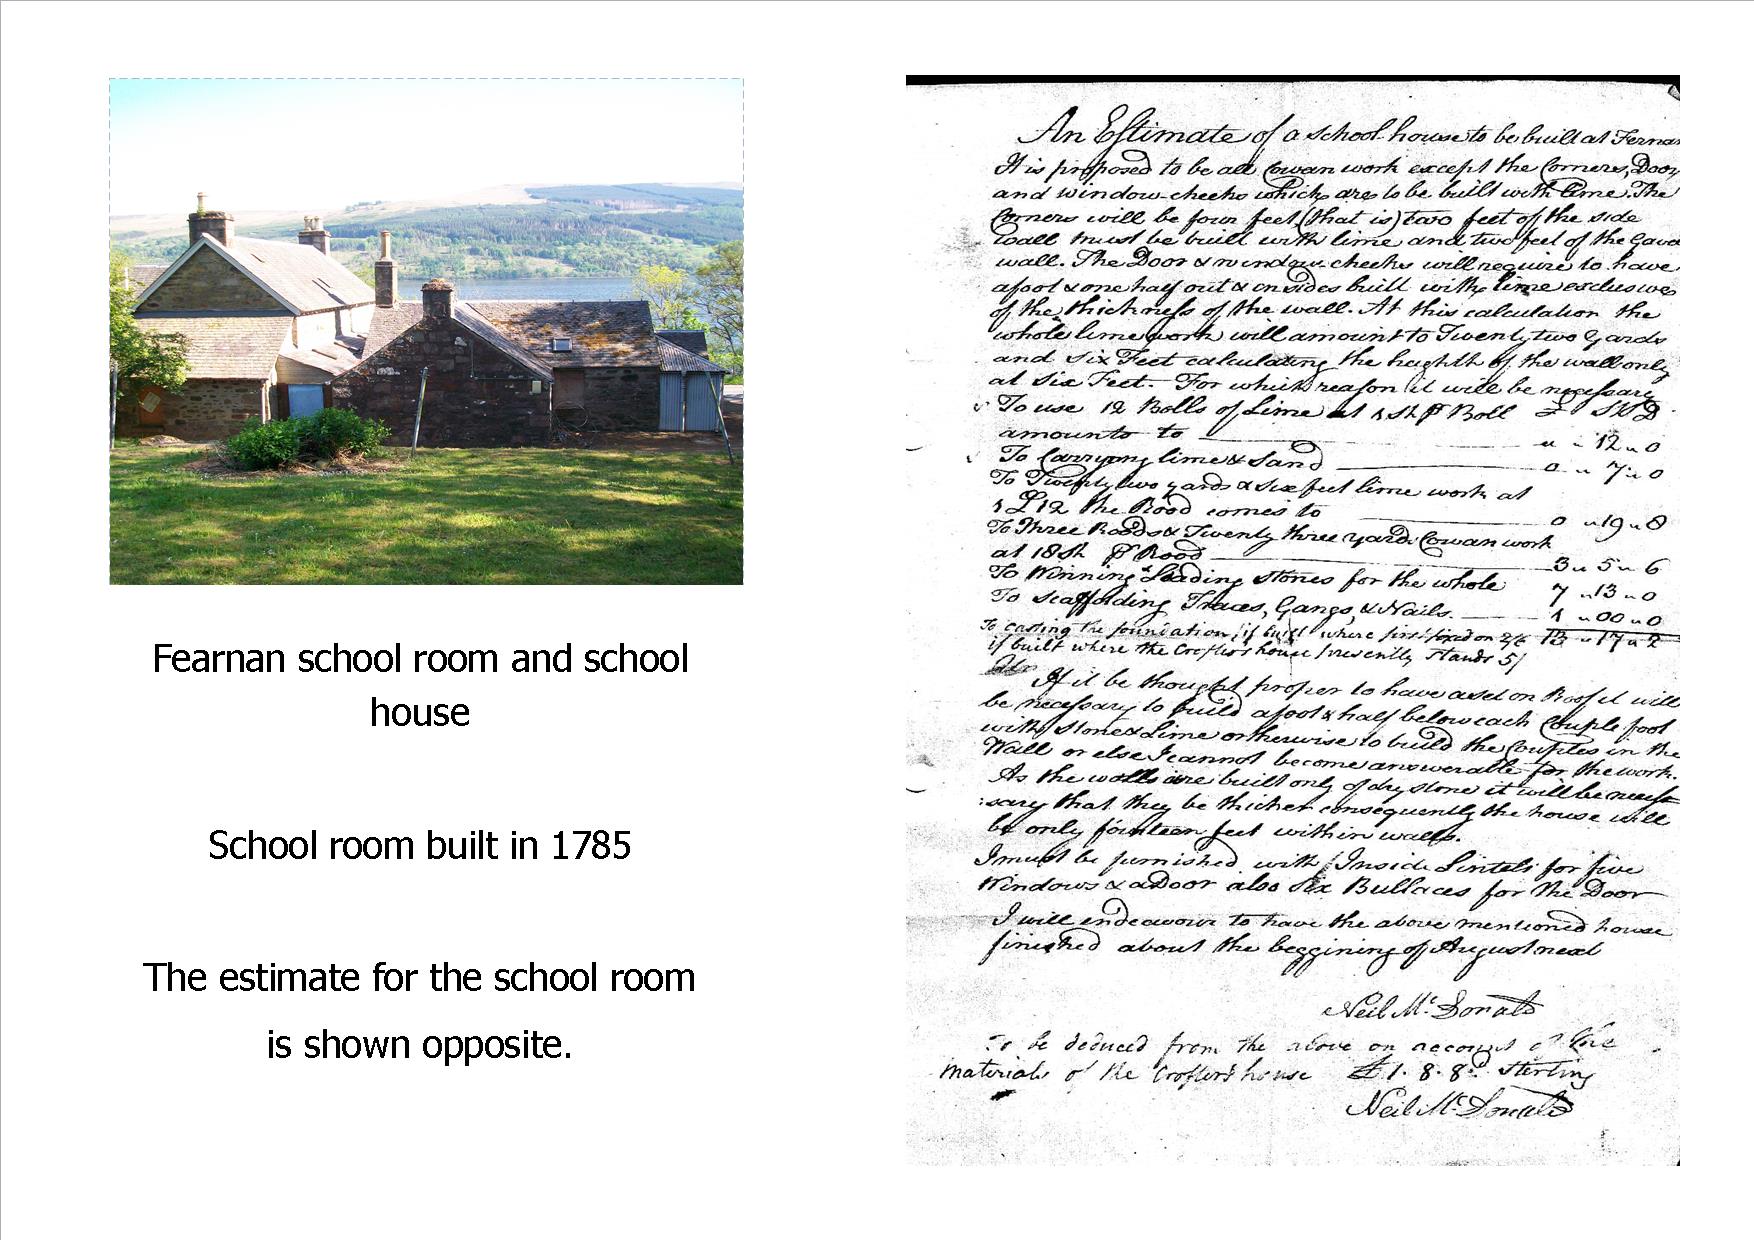 Fearnan school room and school
house
School room built in 1785
The estimate for the school room
is shown opposite.
An Estimate of a school house to be built at Fernan
It is proposed to be all Cowan work except the Corners, Door
and window cheeks which are to be built with lime. The
Corners will be four feet (that is) two feet of the side
wall must be built with lime and two feet of the Gavel
wall. The Door & window cheeks will require to have
a foot & one half out & on sides built with lime exclusive
of the thickness of the wall. At this calculation the
whole lime work will amount to Twenty two Yards
and six Feet calculating the heighth of the wall only
at six Feet. For which reason it will be necessary
To use 12 Bolls of Lime at 1 Sh P Boll £ Sh D
amounts to 12 0
To Carrying lime & Sand 0 7 0
To Twenty two yards & six feet lime work at
1 £ 12 the Rood comes to 0 19 8
To Three Roods & Twenty three yards Cowan work
at 18 Sh P Rood 3 5 6
To Winning & Leading stones for the whole 7 13 0
To Scaffolding Traces, Gangs, & Nails. 1 00 0
To casting the foundation if built where first fixed on 2/6 13 17 2
if built where the Crofters house presently stands 5/
If it be thought proper to have a set on Roof it will
be necessary to build a foot & half below each Couple foot
with stone & Lime or therwise to build the Couples in the
Wall or else I cannot become answerable for the work.
As the walls are built only of dry stone it will be neces
:sary that they be thicker consequently the house will
be only fourteen feet within walls.
I must be furnished with Inside Lintels for five
Windows & a Door also six Bullaces for the Door
I will endeavour to have the above mentioned house
finished about the beggining of August next
Neil Mc Donald
To be deduced from the above on account of the
materials of the Crofters house £1. 8. 8d. Sterling
Neil Mc Donald